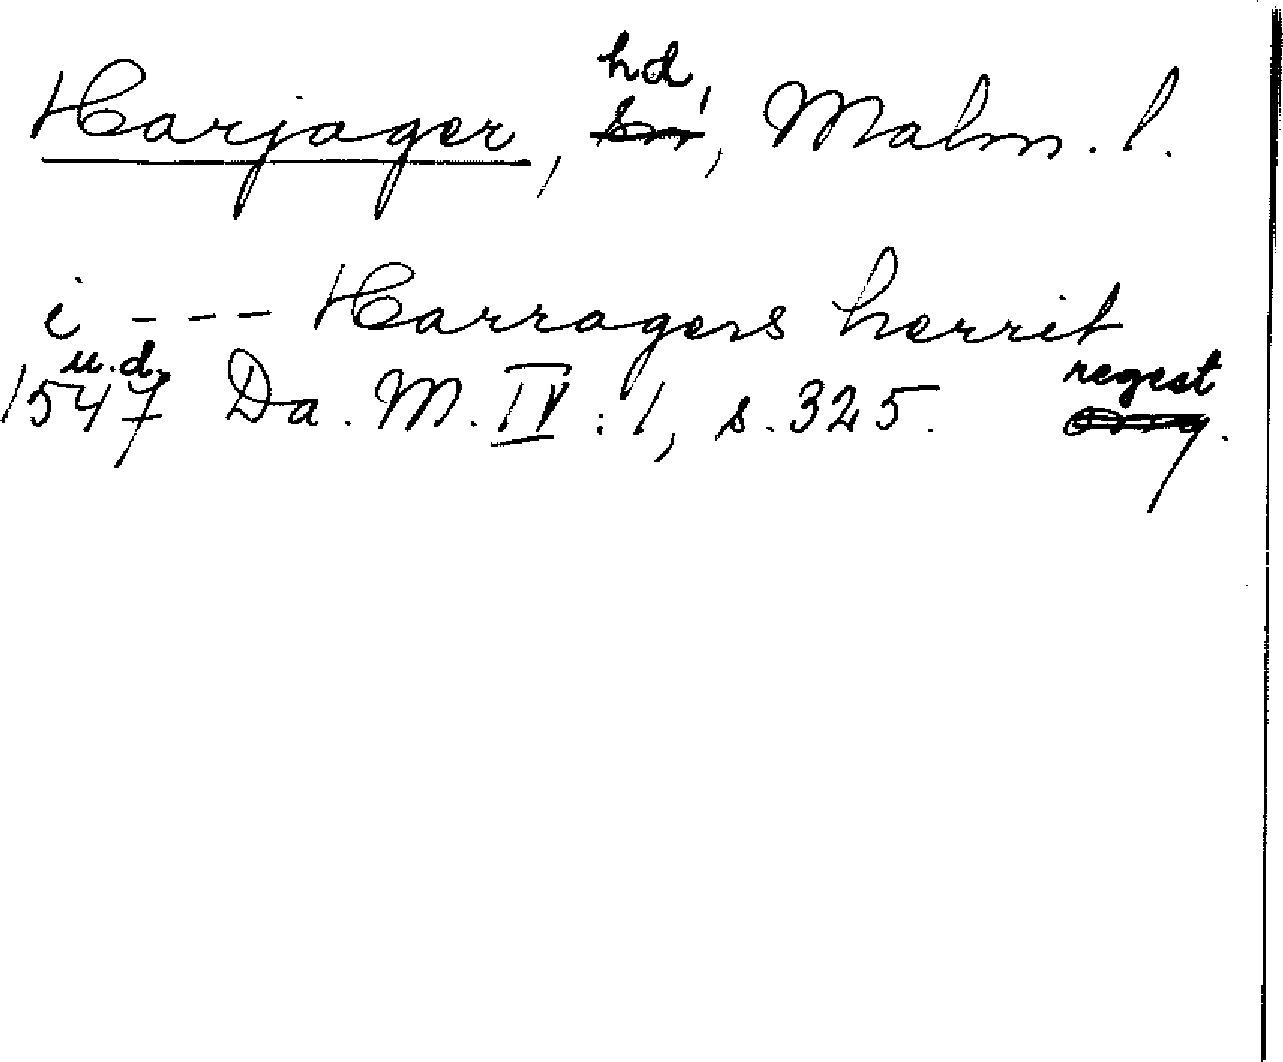 Harjager, hd, Malm. l.
i --- Harragers herrit
1547 u.d. Da. M. IV : 1, s. 325. regest